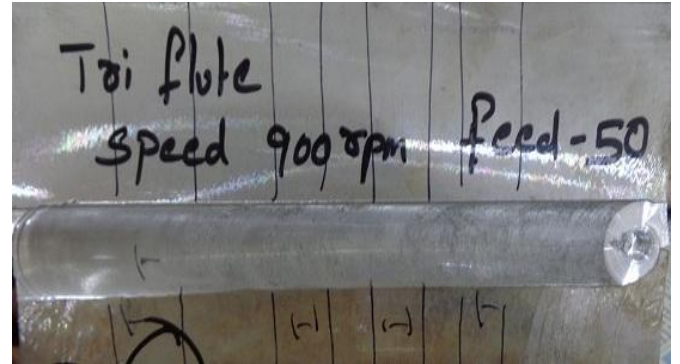 Tri flute
speed 900 rpm feed-50
(-) (-)